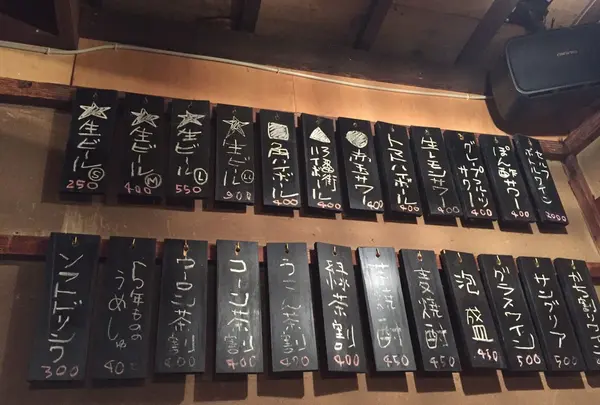 生ビール Ⓢ 250
生ビール Ⓜ 400
生ビール Ⓛ 550
生ビール 900
角ハイボール 400
ハイボール 400
サワー 400
トマトハイボール 400
生レモンサワー 400
グレープフルーツサワー 400
ぽん酢サワー 400
セルフワイン 2000
ソフトドリンク 300
うめしゅ 400
ウーロン茶割り 400
コーン茶割 400
うこん茶割 400
緑茶割り 400
焼酎 450
麦焼酎 450
泡盛 450
グラスワイン 500
サングリア 500
500